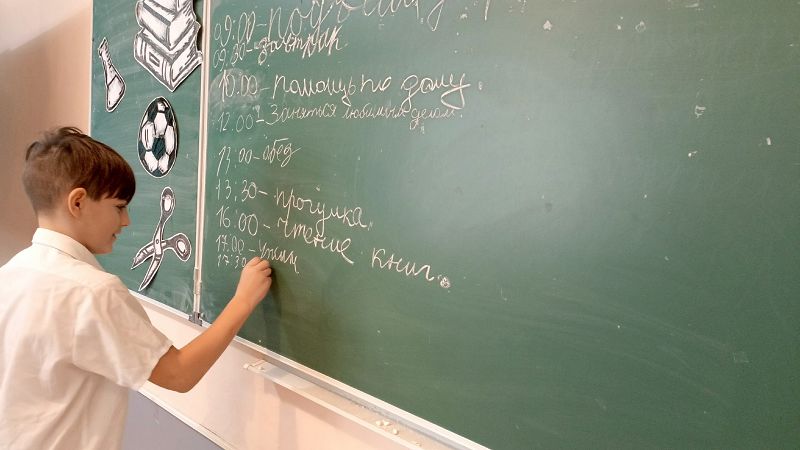 09:00-
09:30-завтрак
10.00-помощь по дому.
12.00-Заняться любимым делом.
13:00-обед
13:30-прогулка.
16:00-чтение книг.
17:00-ужин
17:30